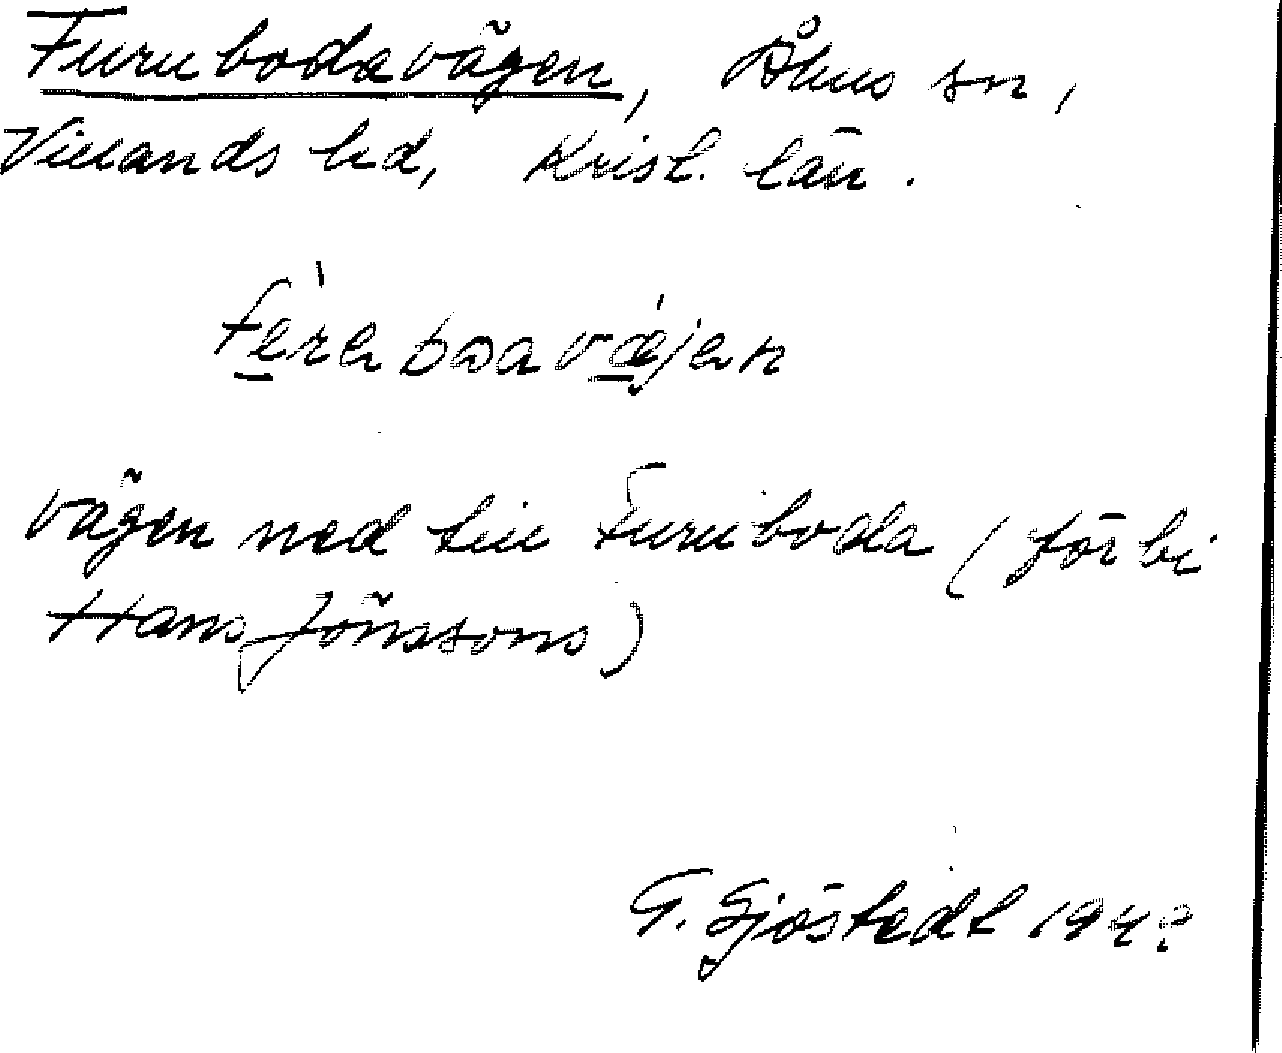 Furubodavägen, Åhus sn,
Villands hd, Krist. län.
fèreboavǽjen
vägen ned till Furuboda (förbi
Hans Jönssons)
G. Sjöstedt